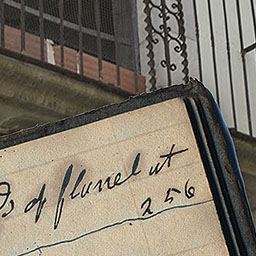 ds of flannel at
2 56